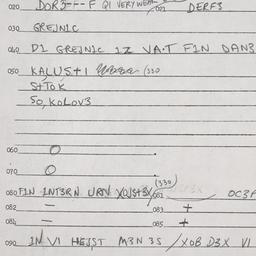 020 DOR3--- F QI VERY WEAK 021 DERF3
030 GREJN1C
040 D1 GREJN1C 1Z VA.T F1N DAN3
050 KALUS+1 (330
S+TOK
SO, KOLOV3
060 O
070 O
080 F1N 1NT3RN URIN (330) 081 OC3F
082 — 083 +
084 — 085 +
090 1N V1 HEJST M3N 3S / XOB D3X V1